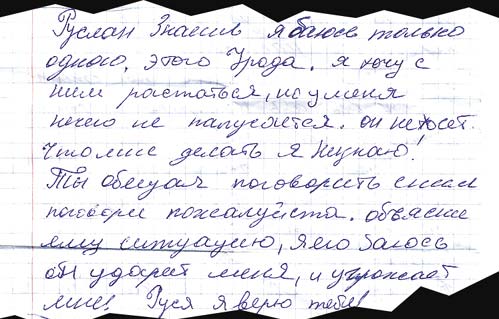 Руслан Знаешь я баюсь только
одного, этого Урода. я хочу с
ним растаться, но у меня
нечего не палучается. он не
Что мне делать я Незнаю!
Ты обещал поговорить с ним
поговори пожалуйста. объясни
ему ситуацию, я его Баюсь
он ударет меня, и угрожает
мне! Руся я верю тебе!